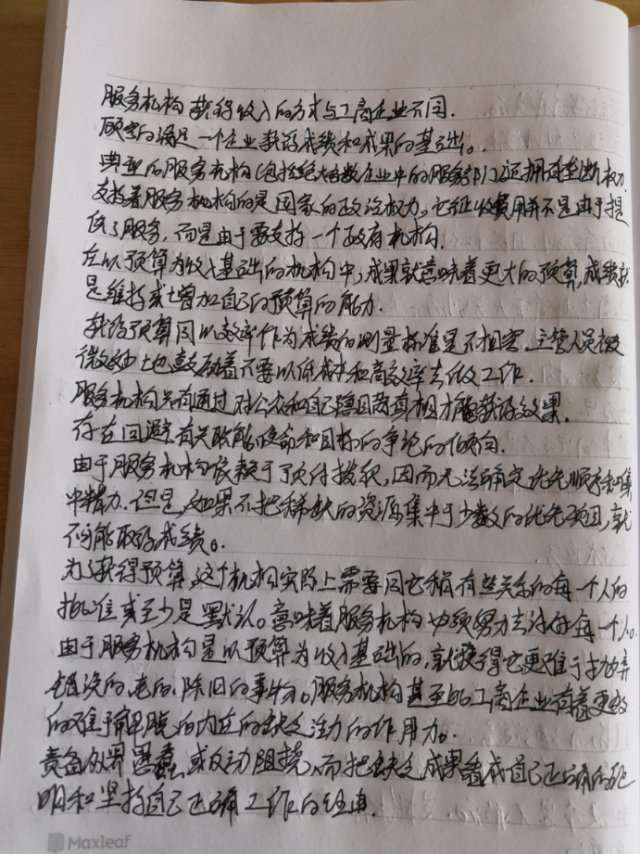 服务机构获得收入的方式与工商企业不同.
顾客的满足一个企业获得成绩和成果的基础。.
典型的服务机构(包括绝大多数企业中的服务部门)还拥有垄断权力.
支持着服务机构的是国家的政治权力,它征收费用并不是由于提
供了服务,而是由于要支持一个政府机构.
在以预算为收入基础的机构中,成果就意味着更大的预算,成绩就
是维持或增加自己的预算的能力.
获得预算同以效率作为成绩的测量标准是不相容.主管人员被
微妙地鼓励着不要以低成本和高效率去做工作.
服务机构只有通过对公众和自己隐真相才能获得效果.
存在回避有关职能,使命和目标的争论的倾向.
由于服务机构依赖于预付拨款,因而无法确定优先顺序和集
中精力.但是,如果不把稀缺的资源集中于少数的优先项目,就
不可能取得成绩。.
为了获得预算,这个机构实际上需要同它稍有些关系的每一个人的
批准或至少是默认。意味着服务机构必须努力去讨好每一个人.
由于服务机构是以预算为收入基础的,就使得它更难于抛弃
错误的,老的,陈旧的事物。服务机构甚至比工商企业有着更多
的难于摆脱的内在的缺乏活力的作用力。
责备外界愚蠢,或反动阻挠,而把缺乏成果看成自己正确的证
明和坚持自己正确工作的经典.
Maxleaf